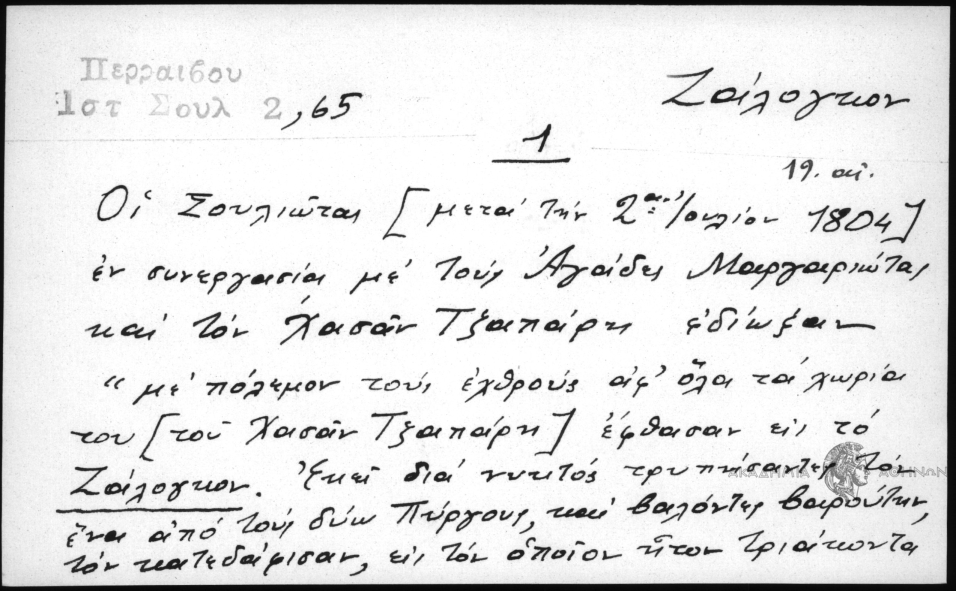 Περραιβου
Ιστ Σουλ 2,65
Ζάλογκον
1
19. αἰ.
Οἱ Σουλιῶται [μετά τήν 2αν Ἰουλίου 1804]
ἐν συνεργασίᾳ μέ τούς Ἀγάδες Μαργαριώτας
καί τόν Χασάν Τζαπάρη ἐδίωξαν
" μέ πόλεμον τούς ἐχθρούς ἀφ' ὅλα τά χωρία
του [τοῦ Χασάν Τζαπάρη] ἔφθασαν εἰς τό
Ζάλογκον. Ἐκεῖ διά νυκτός τρυπήσαντες τόν
ἕνα ἀπό τούς δύω Πύργους, καί βαλόντες βαρούτην,
τόν κατεδάφισαν, εἰς τόν ὁποῖον ἦτον τριάκοντα
ΑΚΑΔΗΜΙΑ ΑΘΗΝΩΝ